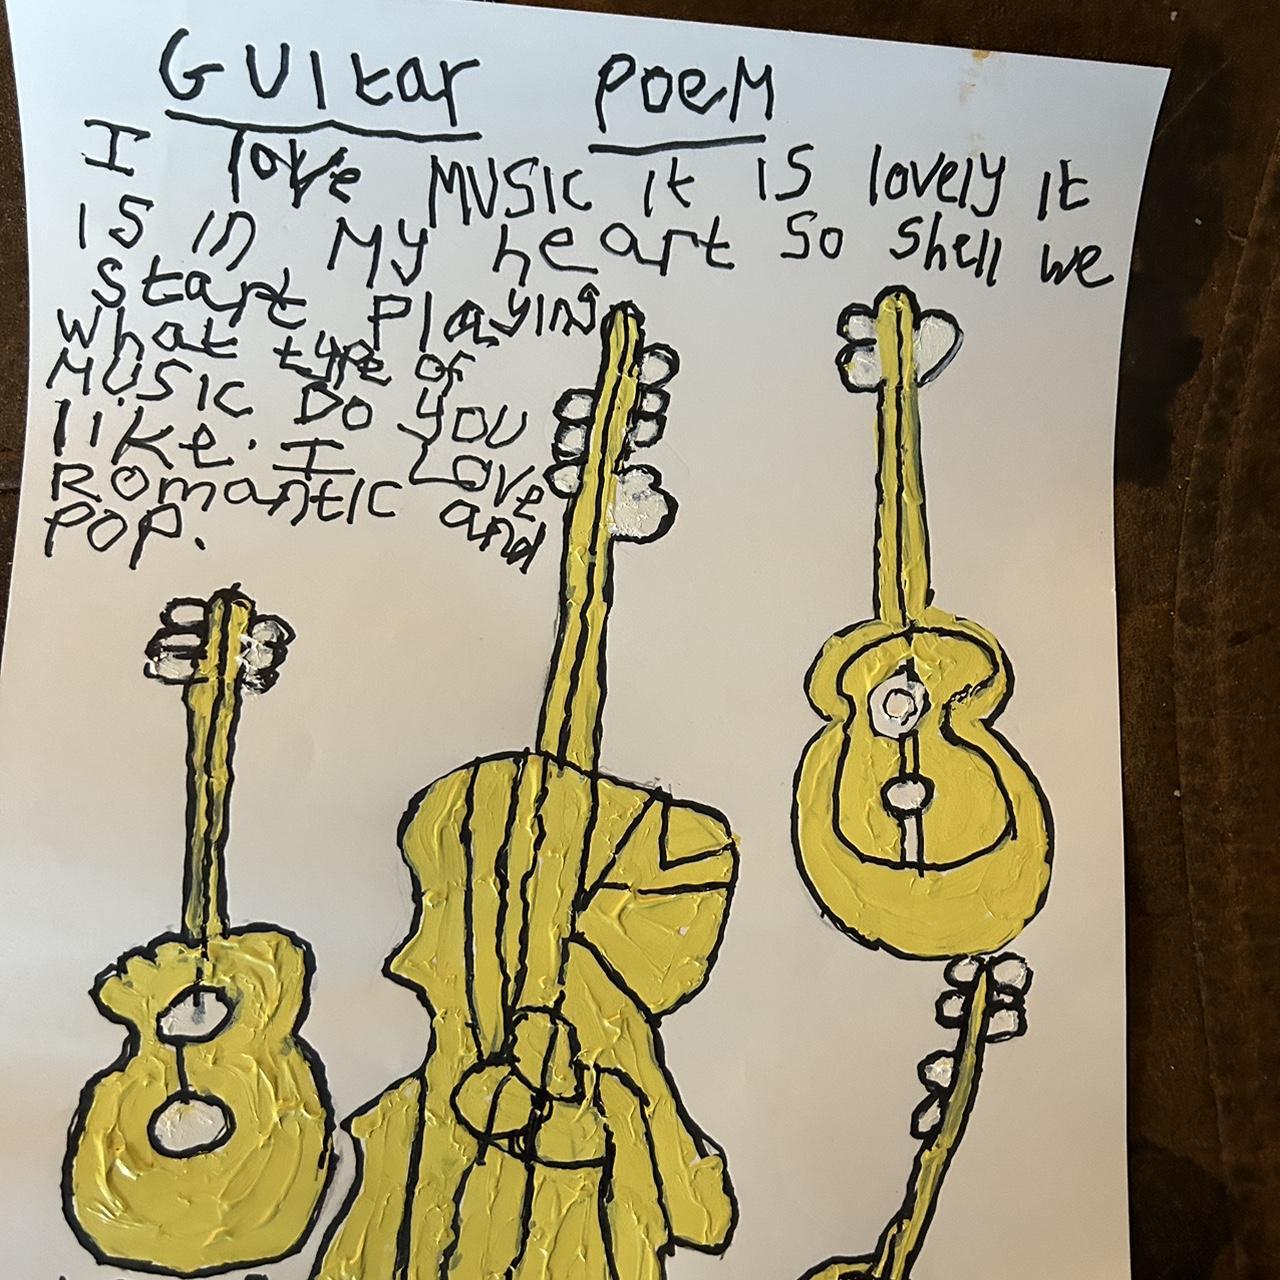 GUItar PoeM
I love MUSIC it IS lovely it
IS in My heart So Shell we
Start Playing
what type of
MUSIC Do you
like. I Love
Romantic and
POP.